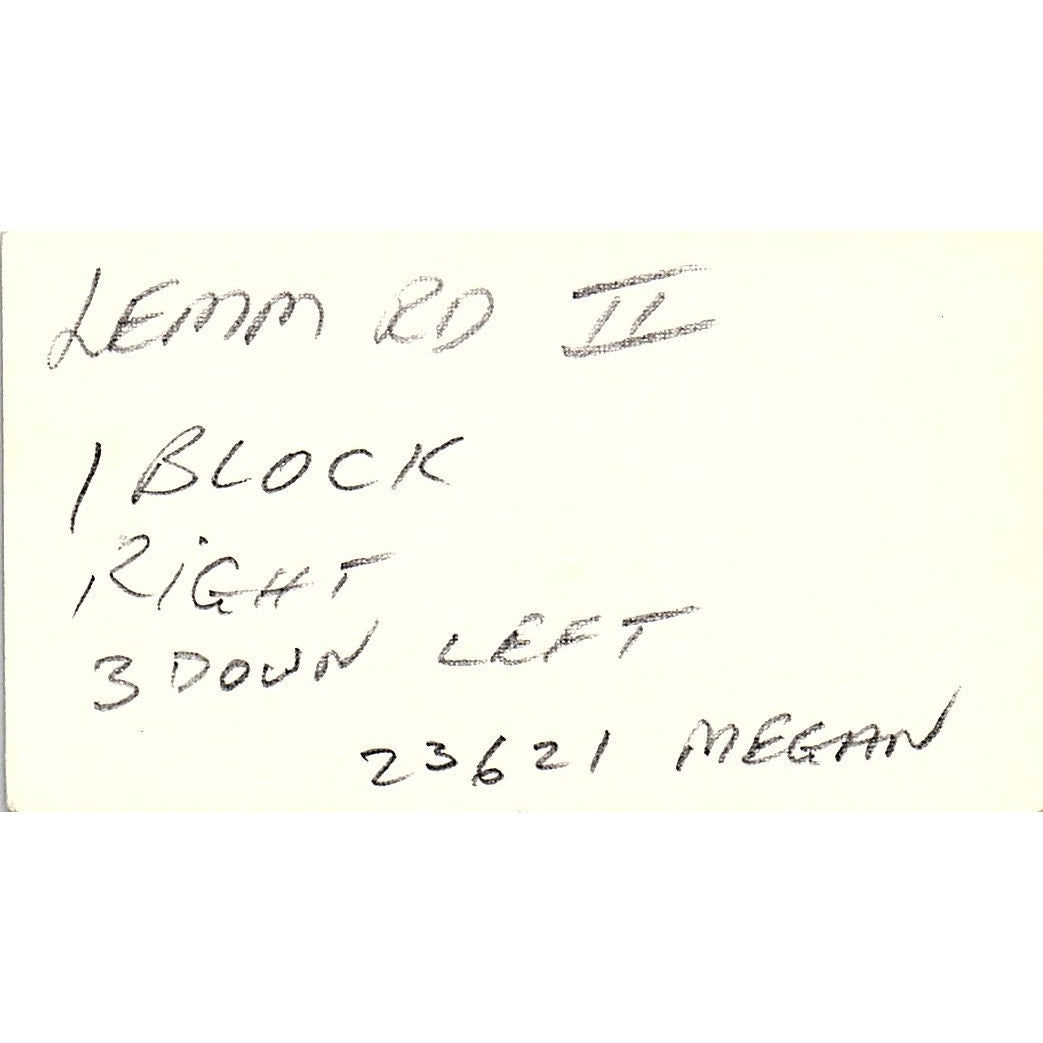 LEMM RD II
1 BLOCK
RIGHT
3 DOWN LEFT
23621 MEGAN